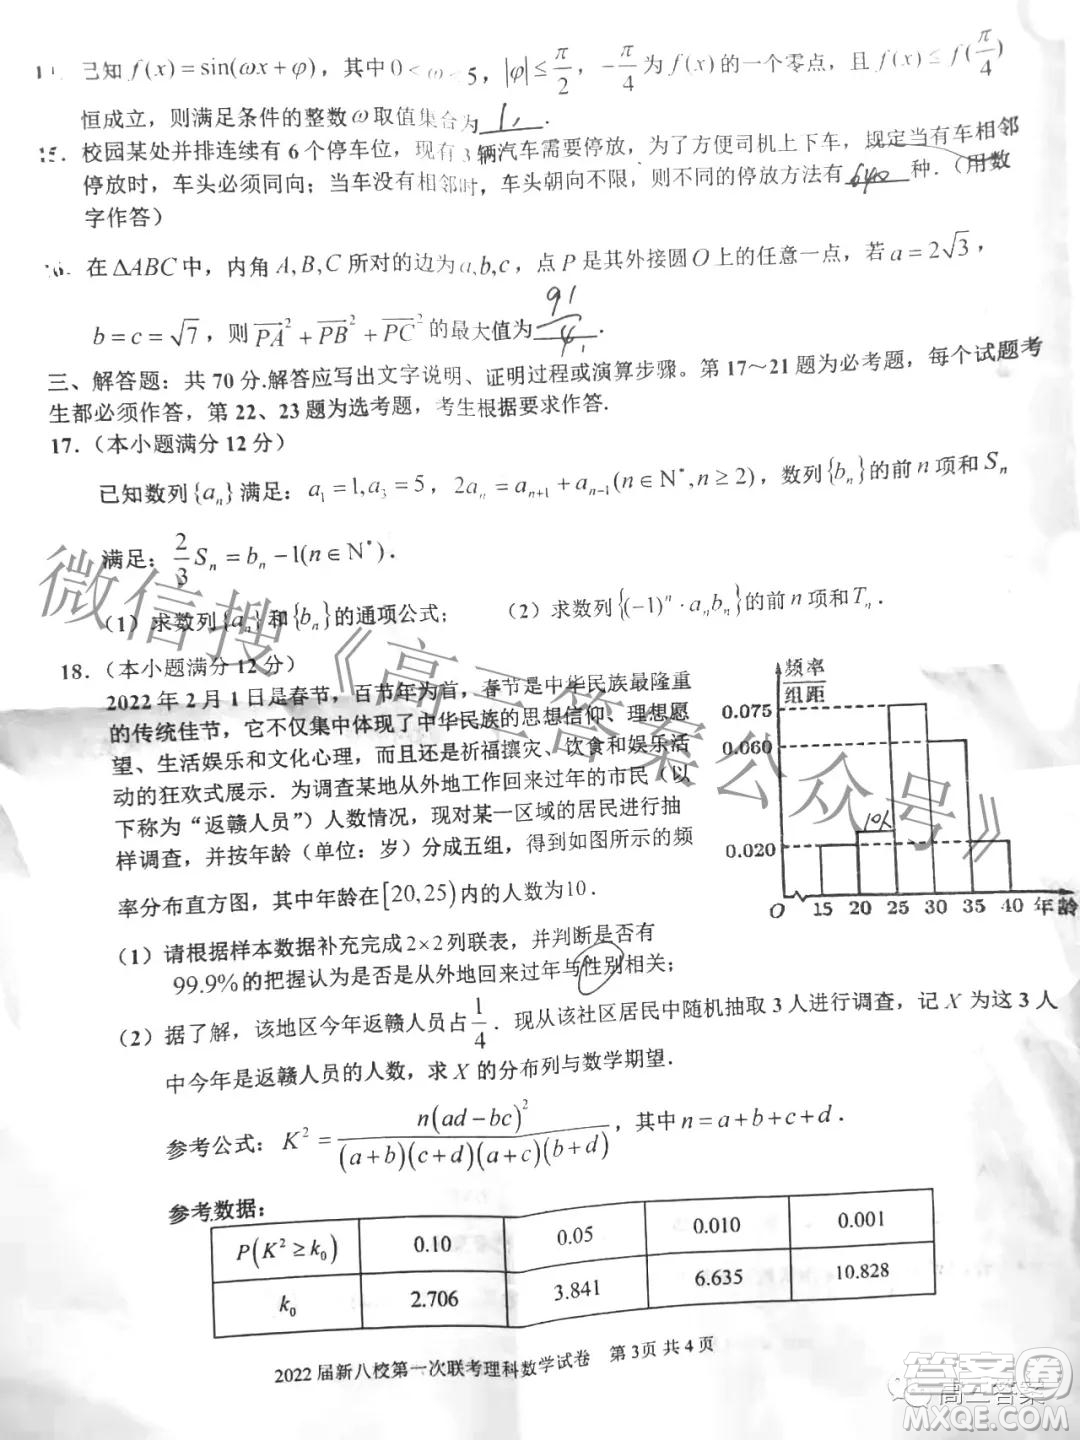 已知 f(x)=sin(ωx+φ)，其中0<ω<5，|φ|≤π/2，-π/4 为 f(x) 的一个零点，且 f(x)≤f(π/4)
恒成立，则满足条件的整数 ω 取值集合为 1, .
15. 校园某处并排连续有 6 个停车位，现有 3 辆汽车需要停放，为了方便司机上下车，规定当有车相邻
停放时，车头必须同向；当车没有相邻时，车头朝向不限，则不同的停放方法有 种.（用数
字作答）
16. 在 ΔABC 中，内角 A,B,C 所对的边为 a,b,c，点 P 是其外接圆 O 上的任意一点，若 a=2√3，
b=c=√7，则 PA²+PB²+PC² 的最大值为 91/4 .
三、解答题：共 70 分.解答应写出文字说明、证明过程或演算步骤。第 17～21 题为必考题，每个试题考
生都必须作答，第 22、23 题为选考题，考生根据要求作答.
17.（本小题满分 12 分）
已知数列{aₙ}满足：a₁=1,a₃=5，2aₙ=aₙ₊₁+aₙ₋₁(n∈N*,n≥2)，数列{bₙ}的前 n 项和 Sₙ
满足：2/3 Sₙ=bₙ-1(n∈N*).
（1）求数列{aₙ}和{bₙ}的通项公式； （2）求数列{(-1)ⁿ·aₙbₙ}的前 n 项和Tₙ.
18.（本小题满分 12 分）
2022 年 2 月 1 日是春节，百节年为首，春节是中华民族最隆重
的传统佳节，它不仅集中体现了中华民族的思想信仰、理想愿
望、生活娱乐和文化心理，而且还是祈福攘灾、饮食和娱乐活
动的狂欢式展示．为调查某地从外地工作回来过年的市民（以
下称为“返赣人员”）人数情况，现对某一区域的居民进行抽
样调查，并按年龄（单位：岁）分成五组，得到如图所示的频
率分布直方图，其中年龄在[20,25)内的人数为10．
频率
组距
0.075
0.060
0.020
10人
O 15 20 25 30 35 40 年龄
（1）请根据样本数据补充完成 2×2 列联表，并判断是否有
99.9%的把握认为是否是从外地回来过年与性别相关；
（2）据了解，该地区今年返赣人员占1/4．现从该社区居民中随机抽取 3 人进行调查，记 X 为这 3 人
中今年是返赣人员的人数，求 X 的分布列与数学期望．
参考公式：K²=n(ad-bc)²/((a+b)(c+d)(a+c)(b+d))，其中n=a+b+c+d．
参考数据：
P(K²≥k₀) 0.10 0.05 0.010 0.001
k₀ 2.706 3.841 6.635 10.828
2022 届新八校第一次联考理科数学试卷 第 3页 共 4 页
微信搜《高三答案公众号》
高三答案
答案圈
MXQE.COM